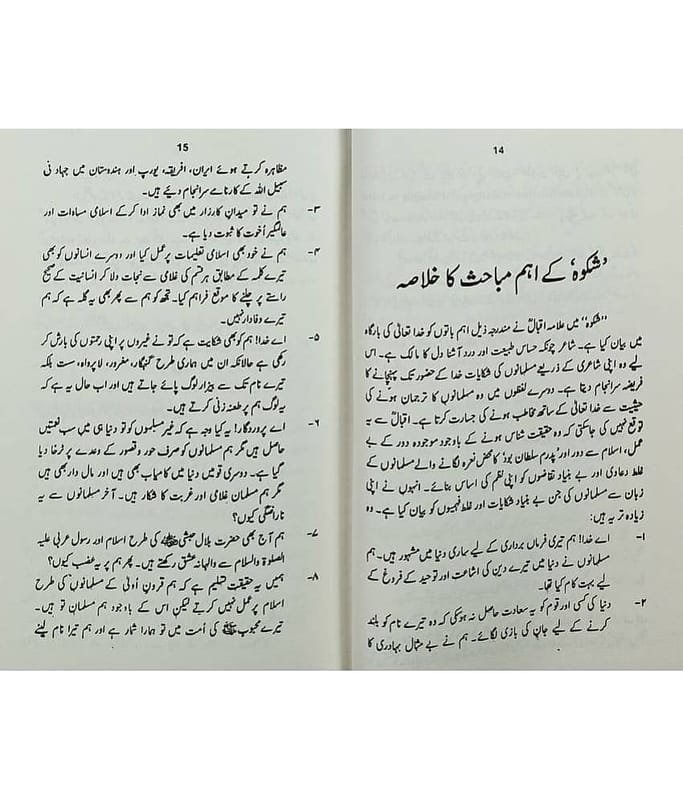 14
’شکوہ‘ کے اہم مباحث کا خلاصہ
”شکوہ“ میں علامہ اقبالؒ نے مندرجہ ذیل اہم باتوں کو خدا تعالیٰ کی بارگاہ
میں بیان کیا ہے۔ شاعر چونکہ حساس طبیعت اور درد آشنا دل کا مالک ہے۔ اس
لیے وہ اپنی شاعری کے ذریعے مسلمانوں کی شکایات خدا کے حضور تک پہنچانے کا
فریضہ سرانجام دیتا ہے۔ دوسرے لفظوں میں وہ مسلمانوں کا ترجمان ہونے کی
حیثیت سے خدا تعالیٰ کے ساتھ مخاطب ہونے کی جسارت کرتا ہے۔ اقبالؒ سے یہ
توقع نہیں کی جاسکتی کہ وہ حقیقت شناس ہونے کے باوجود موجودہ دور کے بے
عمل، اسلام سے دور اور ’پدرم سلطان بود‘ کا محض نعرہ لگانے والے مسلمانوں کے
غلط دعاوی اور بے بنیاد تقاضوں کو اپنی نظم کی اساس بنائے۔ انہوں نے اپنی
زبان سے مسلمانوں کی جن بے بنیاد شکایات اور غلط فہمیوں کو بیان کیا ہے۔ وہ
زیادہ تر یہ ہیں:
۱- اے خدا! ہم تیری فرماں برداری کے لیے ساری دنیا میں مشہور ہیں۔ ہم
مسلمانوں نے دنیا میں تیرے دین کی اشاعت اور توحید کے فروغ کے
لیے بہت کام کیا تھا۔
۲- دنیا کی کسی اور قوم کو یہ سعادت حاصل نہ ہوسکی کہ وہ تیرے نام کو بلند
کرنے کے لیے جان کی بازی لگائے۔ ہم نے بے مثال بہادری کا
15
مظاہرہ کرتے ہوئے ایران، افریقہ، یورپ اور ہندوستان میں جہاد فی
سبیل اللہ کے کارنامے سرانجام دیئے ہیں۔
۳- ہم نے تو میدانِ کارزار میں بھی نماز ادا کرکے اسلامی مساوات اور
عالمگیر اُخوت کا ثبوت دیا ہے۔
۴- ہم نے خود بھی اسلامی تعلیمات پر عمل کیا اور دوسرے انسانوں کو بھی
تیرے کلمہ کے مطابق ہر قسم کی غلامی سے نجات دلا کر انسانیت کے صحیح
راستے پر چلنے کا موقع فراہم کیا۔ تجھ کو ہم سے پھر بھی یہ گلہ ہے کہ ہم
تیرے وفادار نہیں۔
۵- اے خدا! ہم کو بھی شکایت ہے کہ تو نے غیروں پر اپنی رحمتوں کی بارش کر
رکھی ہے حالانکہ ان میں ہماری طرح گنہگار، مغرور، لاپرواہ، ست بلکہ
تیرے نام تک سے بیزار لوگ پائے جاتے ہیں اور اب حال یہ ہے کہ
یہ لوگ ہم پر طعنہ زنی کرتے ہیں۔
۶- اے پروردگار! یہ کیا وجہ ہے کہ غیر مسلموں کو تو دنیا ہی میں سب نعمتیں
حاصل ہیں مگر ہم مسلمانوں کو صرف حور و قصور کے وعدے پر ٹرخا دیا
گیا ہے۔ دوسری قومیں دنیا میں کامیاب بھی ہیں اور مال دار بھی ہیں
مگر ہم مسلمان غلامی اور غربت کا شکار ہیں۔ آخر مسلمانوں سے یہ
ناراضگی کیوں؟
۷- ہم آج بھی حضرت بلال حبشیؓ کی طرح اسلام اور رسول عربی علیہ
الصلوۃ والسلام سے والہانہ عشق رکھتے ہیں۔ پھر ہم پر یہ غضب کیوں؟
۸- ہمیں یہ حقیقت تسلیم ہے کہ ہم قرونِ اُولیٰ کے مسلمانوں کی طرح
اسلام پر عمل نہیں کرتے لیکن اس کے باوجود ہم مسلمان تو ہیں۔
تیرے محبوب ﷺ کی اُمت میں تو ہمارا شمار ہے اور ہم تیرا نام لینے